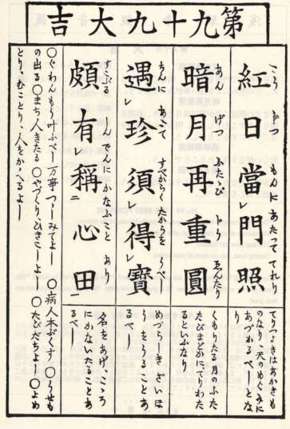 第九十九大吉
紅日當門照
もんにあたつて てれり
のなり、天のめぐみに
あづかるべしとな
り
暗月再重圓
あん げつ ふたたび
くもりたる月のふた
たびまどかにてりわた
るといふなり
遇珍須得寶
すべからく たからを うべし
めづらしきざいほ
うをうることあ
るべし
頗有稱心田
すこぶる しんでんに かなふこと あり
名をあげ、こころ
にかないたることあ
るべし
○ぐわんもう叶ふべし 万事つゝしみてよし ○病人本ぶくす ○うせも
の出る ○まち人きたる ○やづくり、ひきこしよし ○たびだちよし ○よめ
とり、むことり、人をかゝへるよし